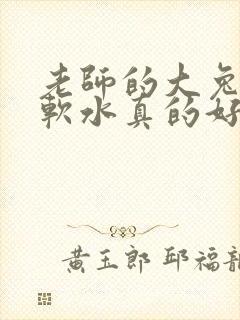 老師的大兔
軟水真的好
黃玉郎 邱福龍